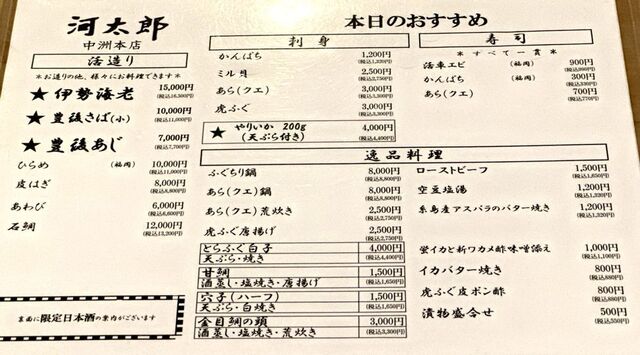 河太郎
中洲本店
活造り
＊お造りの他、様々にお料理できます＊
★ 伊勢海老 15,000円
(税込16,500円)
★ 豊後さば(小) 10,000円
(税込11,000円)
★ 豊後あじ 7,000円
(税込7,700円)
ひらめ (福岡) 10,000円
(税込11,000円)
皮はぎ 8,000円
(税込8,800円)
あわび 6,000円
(税込6,600円)
石鯛 12,000円
(税込13,200円)
裏面に限定日本酒の案内がございます
本日のおすすめ
刺身
かんぱち 1,200円
(税込1,320円)
ミル貝 2,500円
(税込2,750円)
あら(クエ) 3,000円
(税込3,300円)
虎ふぐ 3,000円
(税込3,300円)
★ やりいか 200g 4,000円
(天ぷら付き) (税込4,400円)
寿司
＊すべて一貫＊
活車エビ (福岡) 900円
(税込990円)
かんぱち (福岡) 300円
(税込330円)
あら(クエ) 700円
(税込770円)
逸品料理
ふぐちり鍋 8,000円
(税込8,800円)
あら(クエ)鍋 8,000円
(税込8,800円)
あら(クエ)荒炊き 2,500円
(税込2,750円)
虎ふぐ唐揚げ 2,500円
(税込2,750円)
とらふぐ白子 4,000円
天ぷら・焼き (税込4,400円)
甘鯛 1,500円
酒蒸し・塩焼き・唐揚げ (税込1,650円)
穴子(ハーフ) 1,500円
天ぷら・白焼き (税込1,650円)
金目鯛の頭 3,000円
酒蒸し・塩焼き・荒炊き (税込3,300円)
ローストビーフ 1,500円
(税込1,650円)
空豆塩湯 1,200円
(税込1,320円)
糸島産アスパラのバター焼き 1,200円
(税込1,320円)
蛍イカと新ワカメ酢味噌添え 1,000円
(税込1,100円)
イカバター焼き 800円
(税込880円)
虎ふぐ皮ポン酢 800円
(税込880円)
漬物盛合せ 500円
(税込550円)